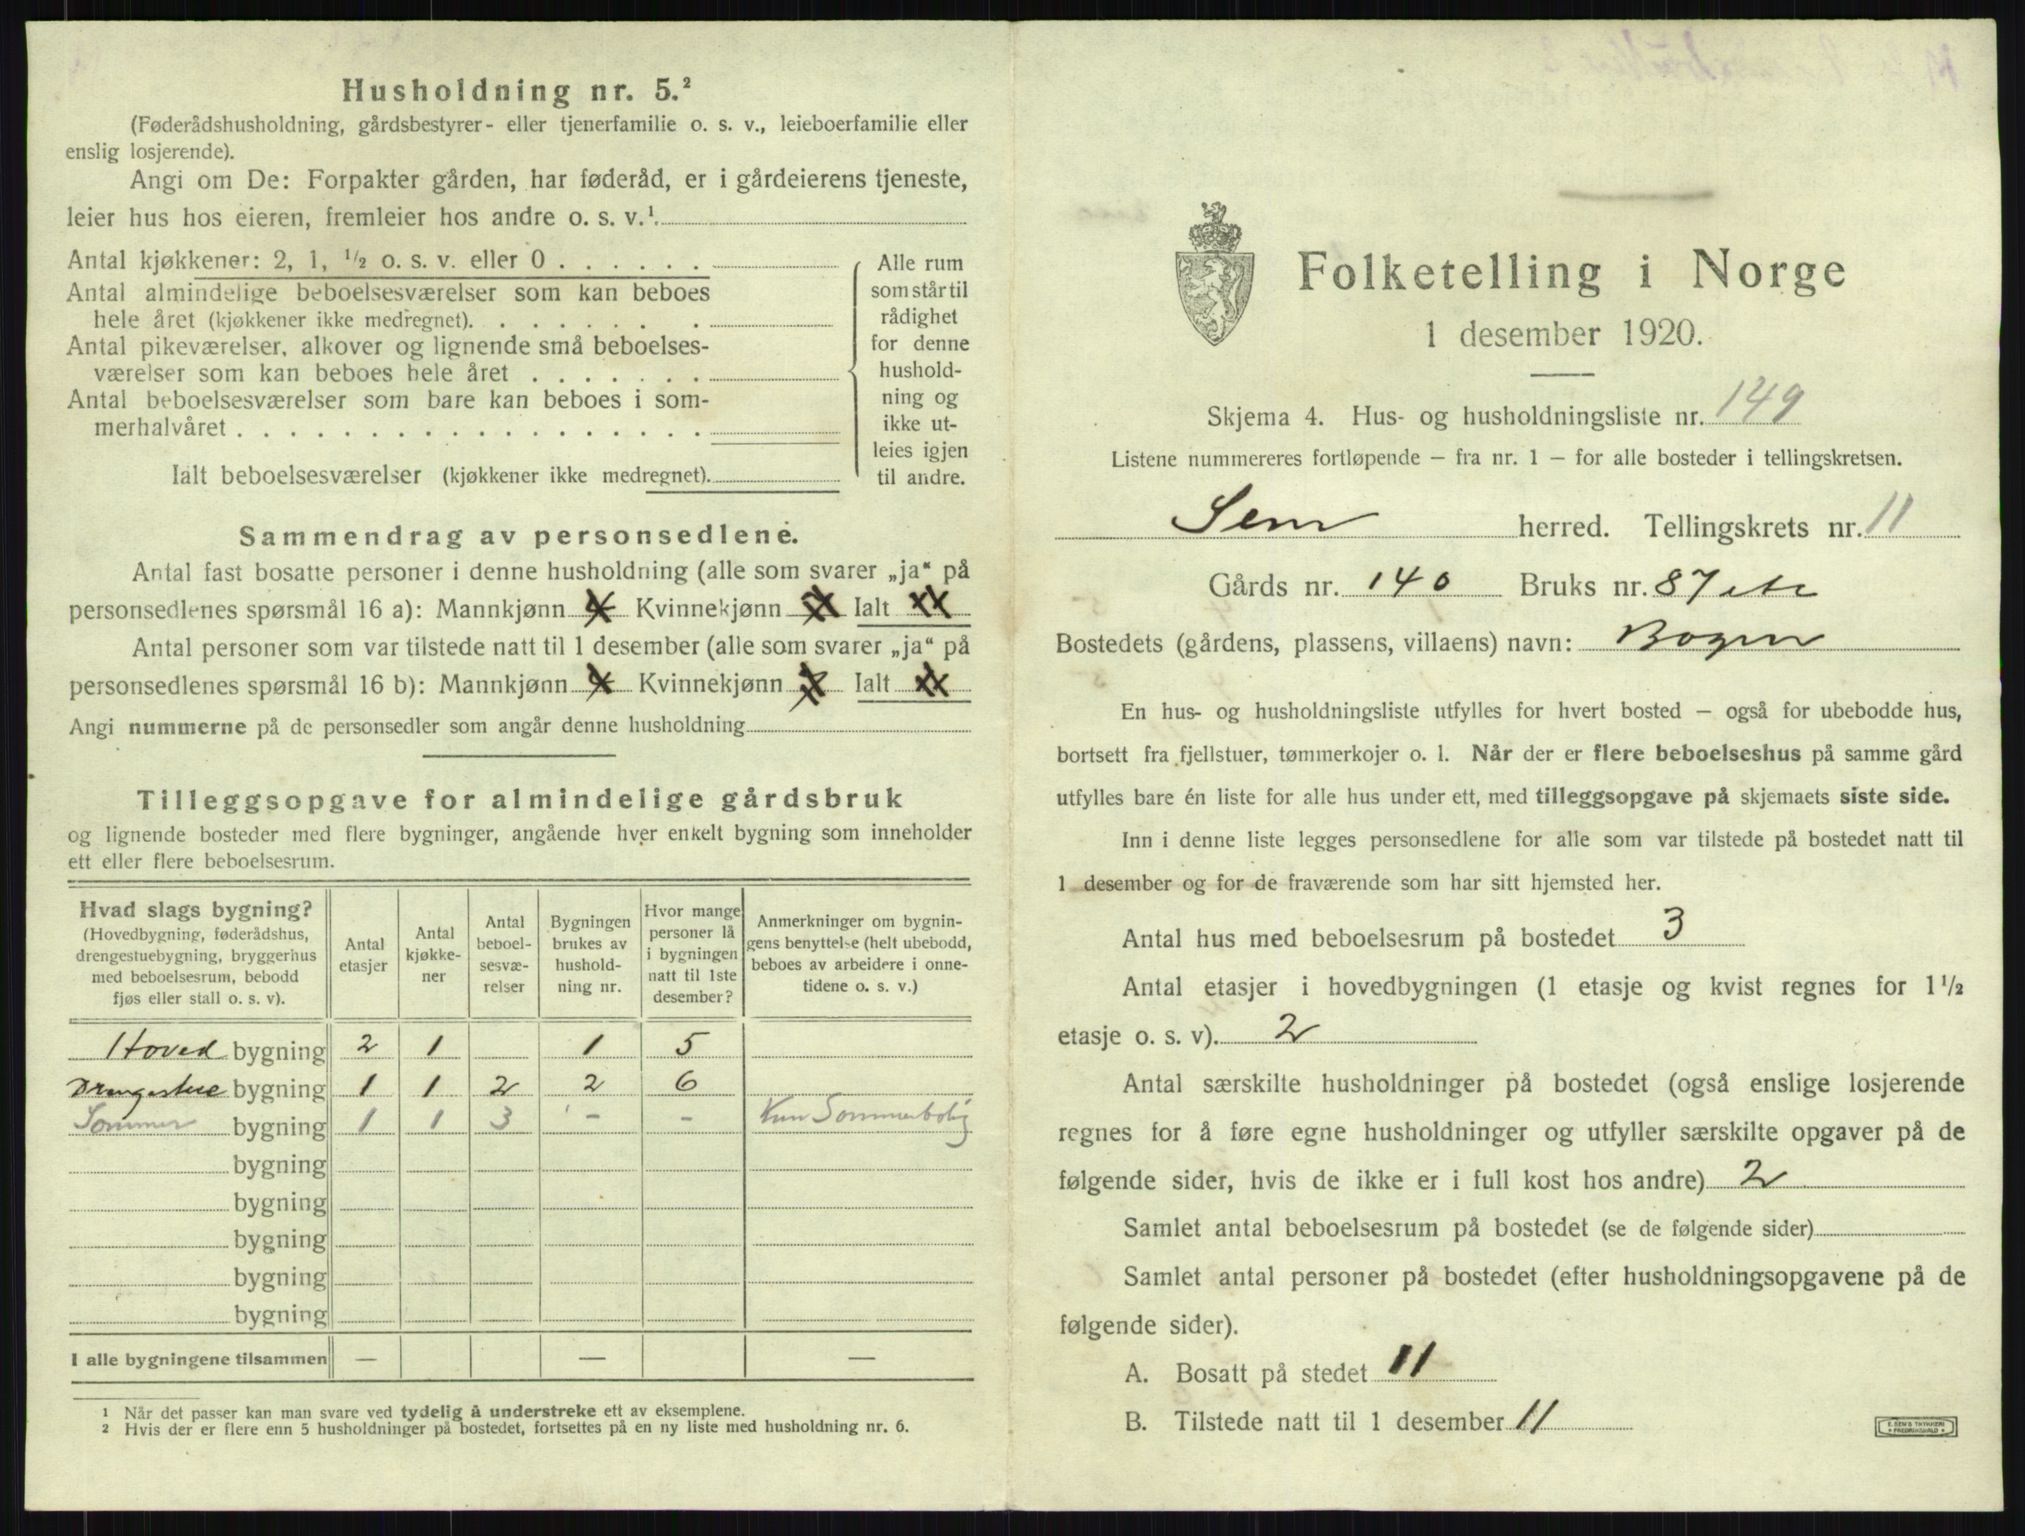 Husholdning nr. 5.²
(Føderådshusholdning, gårdsbestyrer- eller tjenerfamilie o. s. v., leieboerfamilie eller
enslig losjerende).
Angi om De: Forpakter gården, har føderåd, er i gårdeierens tjeneste,
leier hus hos eieren, fremleier hos andre o. s. v.¹.
Antal kjøkkener: 2, 1, ¹/₂ o. s. v. eller 0
Antal almindelige beboelsesværelser som kan beboes
hele året (kjøkkener ikke medregnet).
Antal pikeværelser, alkover og lignende små beboelses-
værelser som kan beboes hele året
Antal beboelsesværelser som bare kan beboes i som-
merhalvåret
Ialt beboelsesværelser (kjøkkener ikke medregnet).
Alle rum
som står til
rådighet
for denne
hushold-
ning og
ikke ut-
leies igjen
til andre.
Sammendrag av personsedlene.
Antal fast bosatte personer i denne husholdning (alle som svarer „ja“ på
personsedlenes spørsmål 16 a): Mannkjønn Kvinnekjønn Ialt
Antal personer som var tilstede natt til 1 desember (alle som svarer „ja“ på
personsedlenes spørsmål 16 b): Mannkjønn Kvinnekjønn Ialt
Angi nummerne på de personsedler som angår denne husholdning
Tilleggsopgave for almindelige gårdsbruk
og lignende bosteder med flere bygninger, angående hver enkelt bygning som inneholder
ett eller flere beboelsesrum.
Hvad slags bygning?
(Hovedbygning, føderådshus,
drengestuebygning, bryggerhus
med beboelsesrum, bebodd
fjøs eller stall o. s. v).
Antal
etasjer
Antal
kjøkke-
ner
Antal
beboel-
sesvæ-
relser
Bygningen
brukes av
hushold-
ning nr.
Hvor mange
personer lå
i bygningen
natt til 1ste
desember?
Anmerkninger om bygnin-
gens benyttelse (helt ubebodd,
beboes av arbeidere i onne-
tidene o. s. v.)
Hoved bygning 2 1 1 5
Drengestue bygning 1 1 2 2 6
Sommer bygning 1 1 3 - - Kun Sommerbolig
bygning
bygning
bygning
bygning
bygning
I alle bygningene tilsammen — — —
¹ Når det passer kan man svare ved tydelig å understreke ett av eksemplene.
² Hvis der er flere enn 5 husholdninger på bostedet, fortsettes på en ny liste med husholdning nr. 6.
Folketelling i Norge
1 desember 1920.
Skjema 4. Hus- og husholdningsliste nr. 149
Listene nummereres fortløpende – fra nr. 1 – for alle bosteder i tellingskretsen.
Sem herred. Tellingskrets nr. 11
Gårds nr. 140 Bruks nr. 87 etc
Bostedets (gårdens, plassens, villaens) navn: Bogen
En hus- og husholdningsliste utfylles for hvert bosted – også for ubebodde hus,
bortsett fra fjellstuer, tømmerkojer o. l. Når der er flere beboelseshus på samme gård
utfylles bare én liste for alle hus under ett, med tilleggsopgave på skjemaets siste side.
Inn i denne liste legges personsedlene for alle som var tilstede på bostedet natt til
1 desember og for de fraværende som har sitt hjemsted her.
Antal hus med beboelsesrum på bostedet 3
Antal etasjer i hovedbygningen (1 etasje og kvist regnes for 1 ¹/₂
etasje o. s. v). 2
Antal særskilte husholdninger på bostedet (også enslige losjerende
regnes for å føre egne husholdninger og utfyller særskilte opgaver på de
følgende sider, hvis de ikke er i full kost hos andre) 2
Samlet antal beboelsesrum på bostedet (se de følgende sider)
Samlet antal personer på bostedet (efter husholdningsopgavene på de
følgende sider).
A. Bosatt på stedet 11
B. Tilstede natt til 1 desember 11